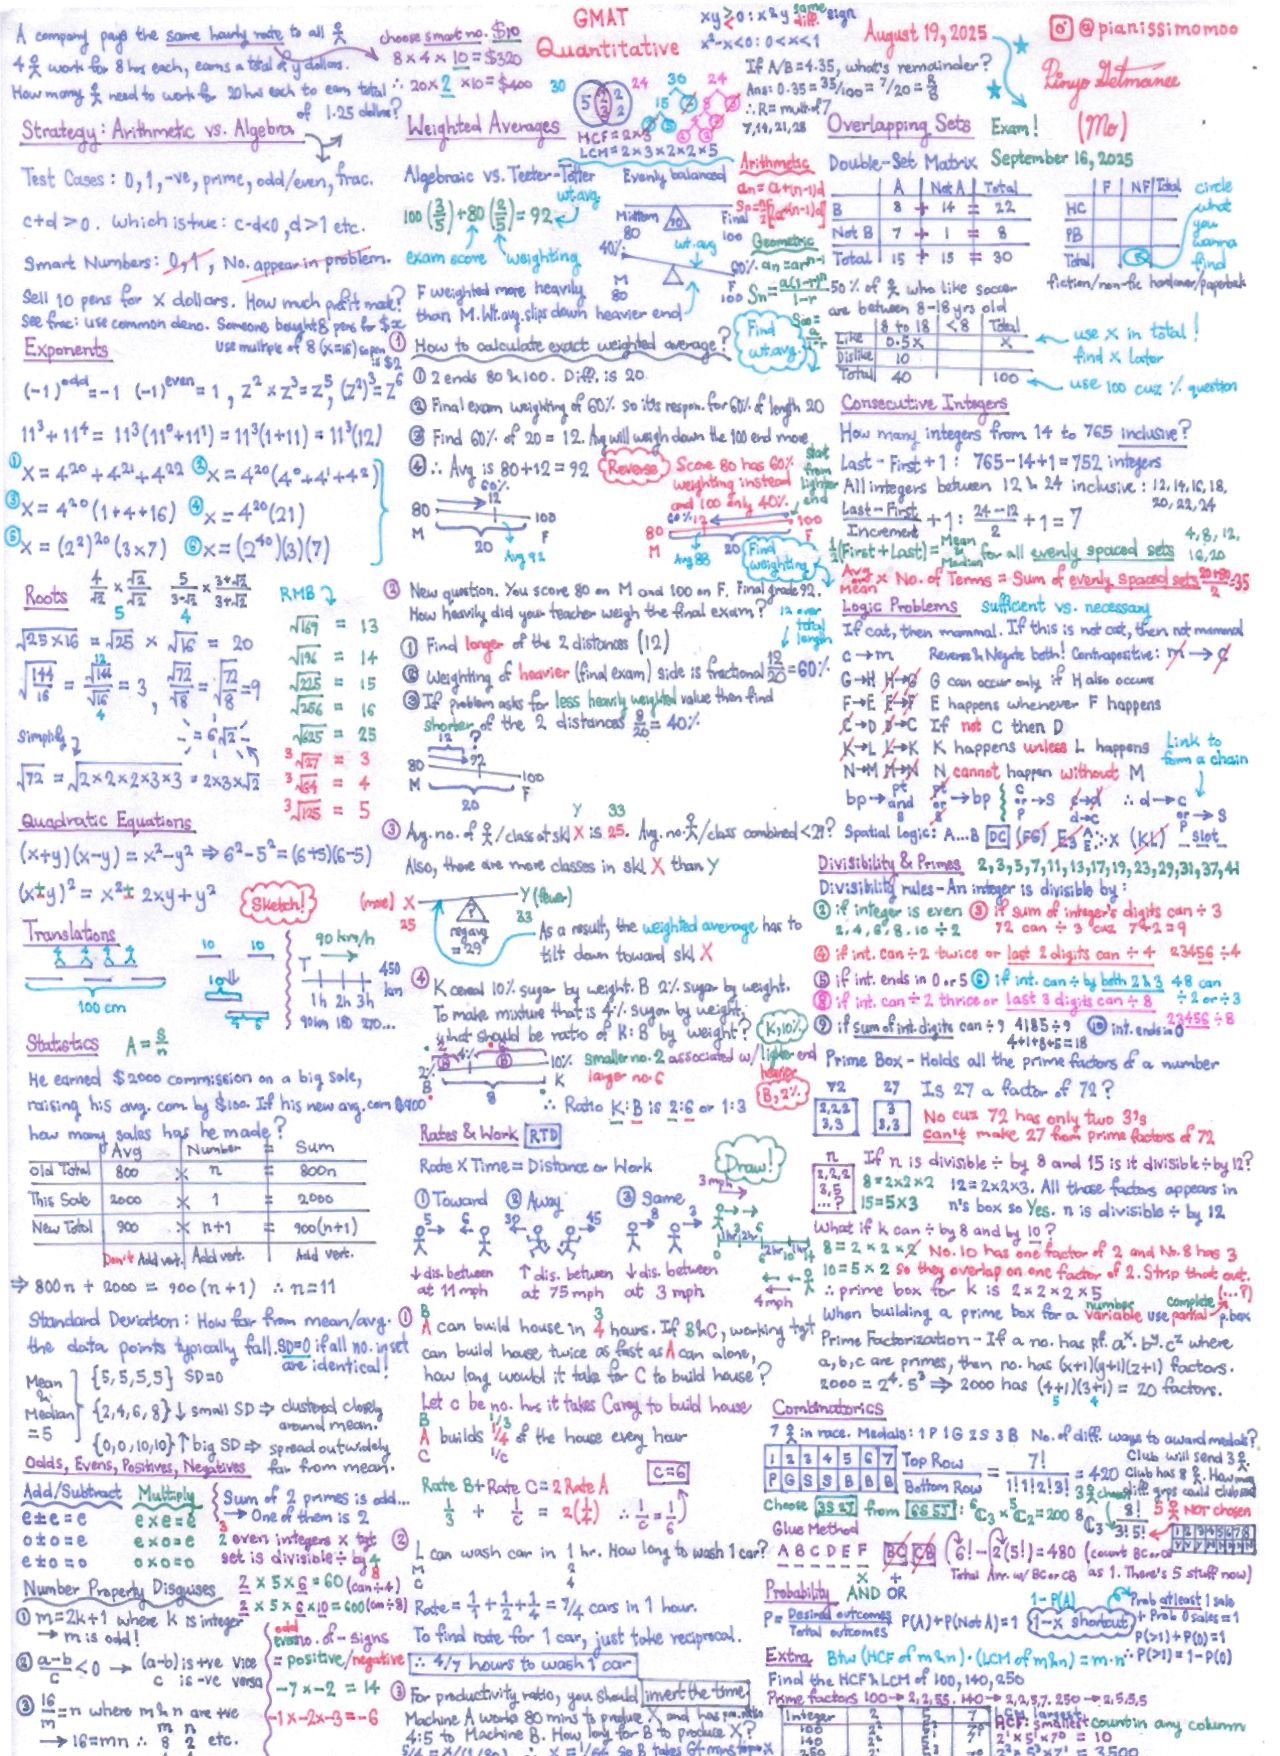 GMAT
Quantitative
August 19, 2025
@pianissimomoo
(Mo)
Exam!
September 16, 2025
A company pays the same hourly rate to all
4 work for 8 hrs each, earns a total of y dollars.
How many need to work for 20 hrs each to earn total
of 1.25 dollars?
choose smart no. $10
8 × 4 × 10 = $320
∴ 20 × 2 × 10 = $400
Strategy: Arithmetic vs. Algebra
Test Cases: 0, 1, -ve, prime, odd/even, frac.
c+d > 0. Which is true: c-d<0, d>1 etc.
Smart Numbers: 0,1, No. appear in problem.
Sell 10 pens for x dollars. How much profit made?
See frac: use common deno. Someone bought 8 pens for $x
use multiple of 8 (x=16) so pen is $2
Exponents
(-1)^odd = -1 (-1)^even = 1, z² × z³ = z⁵, (z²)³ = z⁶
11³ + 11⁴ = 11³(11⁰+11¹) = 11³(1+11) = 11³(12)
① x = 4²⁰ + 4²¹ + 4²² ② x = 4²⁰(4⁰+4¹+4²)
③ x = 4²⁰(1+4+16) ④ x = 4²⁰(21)
⑤ x = (2²)²⁰(3×7) ⑥ x = (2⁴⁰)(3)(7)
Roots
4/√2 × √2/√2 5/3-√2 × 3+√2/3+√2
RMB
√25×16 = √25 × √16 = 5 × 4 = 20
√144/16 = √144/√16 = 12/4 = 3, √72/√8 = √72/8 = √9
Simplify
√72 = √2×2×2×3×3 = 2×3×√2
= 6√2
√169 = 13
√196 = 14
√225 = 15
√256 = 16
√625 = 25
³√27 = 3
³√64 = 4
³√125 = 5
Quadratic Equations
(x+y)(x-y) = x²-y² ⇒ 6²-5² = (6+5)(6-5)
(x±y)² = x² ± 2xy + y²
Sketch!
Translations
100 cm
10 10
10
5 5
90 km/h
T
450 km
1h 2h 3h
90km 180 270...
Statistics A = S/n
He earned $2000 commission on a big sale,
raising his avg. com by $100. If his new avg. com $900
how many sales has he made?
Avg Number = Sum
Old Total 800 × n = 800n
This Sale 2000 × 1 = 2000
New Total 900 × n+1 = 900(n+1)
Don't Add vert. Add vert. Add vert.
⇒ 800n + 2000 = 900(n+1) ∴ n=11
Standard Deviation: How far from mean/avg.
the data points typically fall. SD=0 if all no. in set
are identical!
Mean & Median = 5
{5,5,5,5} SD=0
{2,4,6,8} ↓ small SD ⇒ clustered closely around mean.
{0,0,10,10} ↑ big SD ⇒ spread out widely far from mean.
Odds, Evens, Positives, Negatives
Add/Subtract Multiply
e ± e = e e × e = e
o ± o = e e × o = e
e ± o = o o × o = o
Sum of 2 primes is odd...
→ One of them is 2
even integers × tgt
set is divisible ÷ by
2 × 5 × 6 = 60 (can ÷4)
2 × 5 × 6 × 10 = 600 (can ÷8)
Number Property Disguises
① m=2k+1 where k is integer
→ m is odd!
② a-b/c < 0 → (a-b) is +ve vice
c is -ve versa
③ 16/m = n where m & n are +ve
→ 16=mn ∴ m n 8 2 etc.
odd
even no. of - signs
= positive/negative
-7 × -2 = 14
-1 × -2 × -3 = -6
30 24
30 24
15
HCF = 2×3
LCM = 2×3×2×2×5
xy > 0 : x & y same sign
< diff.
x²-x<0 : 0<x<1
If A/B = 4.35, what's remainder?
Ans: 0.35 = 35/100 = 7/20 = R/B
∴ R = mult. of 7
7,14,21,28
Weighted Averages
Algebraic vs. Teeter-Totter
100(3/5) + 80(2/5) = 92
wt. avg
exam score weighting
Evenly balanced
Midterm 80 90 Final 100
40% wt. avg 60%
M 80 F 100
F weighted more heavily
than M. Wt. avg. slips down heavier end
Arithmetic
an = a+(n-1)d
Geometric
an = ar^n-1
Sn = a(1-rⁿ)/1-r
S∞ = a/1-r
Find wt. avg.
① How to calculate exact weighted average?
① 2 ends 80 & 100. Diff. is 20
② Final exam weighting of 60% so it's respon. for 60% of length 20
③ Find 60% of 20 = 12. Avg will weigh down the 100 end more
④ ∴ Avg is 80+12 = 92
60%
80 12 100
M 20 F
Avg 92
Reverse
Score 80 has 60%
weighting instead
and 100 only 40%.
start from lighter end
60% 12
80 100
M 20 F
Avg 88
Find weighting
② New question. You score 80 on M and 100 on F. Final grade 92.
How heavily did your teacher weigh the final exam?
12 over total length
① Find longer of the 2 distances (12)
② Weighting of heavier (final exam) side is fractional 12/20 = 60%
③ If problem asks for less heavily weighted value then find
shorter of the 2 distances 8/20 = 40%
12 ?
80 92 100
M 20 F
③ Avg. no. of /class at skl X is 25. Y 33 Avg. no. /class combined < 29?
Also, there are more classes in skl X than Y
(more) X 25
Y (fewer) 33
reg avg = 29
As a result, the weighted average has to
tilt down toward skl X
④ K cereal 10% sugar by weight. B 2% sugar by weight.
To make mixture that is 4% sugar by weight,
what should be ratio of K:B by weight?
K, 10%
B, 2%
2% 4% 10%
B 8 K
smaller no. 2 associated w/ lighter end
larger no. 6 heavier
∴ Ratio K:B is 2:6 or 1:3
Rates & Work RTD
Rate × Time = Distance or Work
Draw!
① Toward ② Away ③ Same
5 6 30 45 8 3
↓ dis. between at 11 mph
↑ dis. between at 75 mph
↓ dis. between at 3 mph
3 mph
4 mph
① A can build house in 4 hours. If B & C, working tgt
B 3
can build house twice as fast as A can alone,
how long would it take for C to build house?
Let c be no. hrs it takes Carey to build house
B 1/3
A builds 1/4 of the house every hour
C 1/c
Rate B + Rate C = 2 Rate A
1/3 + 1/c = 2(1/4) ∴ 1/c = 1/6
c=6
② L can wash car in 1 hr. How long to wash 1 car?
M 2
C 4
Rate = 1/1 + 1/2 + 1/4 = 7/4 cars in 1 hour.
To find rate for 1 car, just take reciprocal.
∴ 4/7 hours to wash 1 car
③ For productivity ratio, you should invert the time
Machine A works 80 mins to produce X and has pro. ratio
4:5 to Machine B. How long for B to produce X?
Overlapping Sets
Double-Set Matrix
A Not A Total
B 8 + 14 = 22
Not B 7 + 1 = 8
Total 15 + 15 = 30
F NF Total
HC
PB
Total
circle what you wanna find
fiction/non-fic hardcover/paperback
50% of who like soccer
are between 8-18 yrs old
8 to 18 <8 Total
Like 0.5x x
Dislike 10
Total 40 100
use x in total!
find x later
use 100 cuz % question
Consecutive Integers
How many integers from 14 to 765 inclusive?
Last - First + 1 : 765-14+1 = 752 integers
All integers between 12 & 24 inclusive : 12, 14, 16, 18,
20, 22, 24
Last - First/Increment + 1 : 24-12/2 + 1 = 7
½(First + Last) = Mean & Median for all evenly spaced sets
4, 8, 12, 16, 20
Avg Mean × No. of Terms = Sum of evenly spaced sets
Logic Problems sufficient vs. necessary
If cat, then mammal. If this is not cat, then not mammal
c→m Reverse & Negate both! Contrapositive: m → c
G→H H→G G can occur only if H also occurs
F→E E→F E happens whenever F happens
C→D D→C If not C then D
K→L L→K K happens unless L happens
N→M M→N N cannot happen without M
Link to form a chain
∴ d→c or→s
Spatial Logic: A...B DC (FG) (KL) slot
Divisibility & Primes 2,3,5,7,11,13,17,19,23,29,31,37,41
Divisibility rules - An integer is divisible by:
② if integer is even ③ if sum of integer's digits can ÷ 3
2, 4, 6, 8, 10 ÷2 72 can ÷ 3 cuz 7+2=9
④ if int. can ÷2 twice or last 2 digits can ÷ 4 23456 ÷4
⑤ if int. ends in 0 or 5 ⑥ if int. can ÷ by both 2 & 3 48 can
÷2 or ÷3
⑧ if int. can ÷2 thrice or last 3 digits can ÷ 8 23456 ÷8
⑨ if sum of int. digits can ÷9 4185÷9 ⑩ int. ends in 0
4+1+8+5=18
Prime Box - Holds all the prime factors of a number
72 27
2,2,2 3,3
3 3,3
Is 27 a factor of 72?
No cuz 72 has only two 3's
Can't make 27 from prime factors of 72
n
2,2,2 3,5 ...?
If n is divisible ÷ by 8 and 15 is it divisible ÷ by 12?
8 = 2×2×2 12 = 2×2×3. All those factors appears in
15 = 5×3 n's box so Yes. n is divisible ÷ by 12
What if k can ÷ by 8 and by 10?
8 = 2×2×2 No. 10 has one factor of 2 and No. 8 has 3
10 = 5×2 so they overlap on one factor of 2. Strip that out.
∴ prime box for k is 2×2×2×5
When building a prime box for a variable use partial p. box
number complete (...?)
Prime Factorization - If a no. has p.f. a^x . b^y . c^z where
a, b, c are primes, then no. has (x+1)(y+1)(z+1) factors.
2000 = 2⁴ . 5³ ⇒ 2000 has (4+1)(3+1) = 20 factors.
5 4
Combinatorics
7 in race. Medals: 1P 1G 2S 3B No. of diff. ways to award medals?
1 2 3 4 5 6 7
P G S S B B B
Top Row/Bottom Row = 7!/1!1!2!3! = 420
Club will send 3.
Club has 8. How many
diff. grps could club send
Choose 3S 2J from 6S 5J : ⁶C₃ × ⁵C₂ = 200
⁸C₃ 8!/3!5!
3 chosen
5 NOT chosen
1 2 3 4 5 6 7 8
Y Y Y N N N N N
Glue Method
A B C D E F
BC CB
6! - 2(5!) = 480 (count BC or CB
Total Arr. w/ BC or CB as 1. There's 5 stuff now)
Probability AND OR
× +
P = Desired outcomes/Total outcomes
P(A)+P(Not A)=1
1-P(A)
1-x shortcut
Prob at least 1 sale
+ Prob 0 sales = 1
P(≥1)+P(0)=1
∴ P(≥1) = 1-P(0)
Extra Btw (HCF of m & n) · (LCM of m & n) = m·n
Find the HCF & LCM of 100, 140, 250
Prime factors 100→2,2,5,5. 140→2,2,5,7. 250→2,5,5,5
Integer 2 5 7
100 2² 5² 7⁰
140 2² 5¹ 7¹
LCM largest
HCF: smallest count in any column
2¹ 5¹ 7⁰ = 10